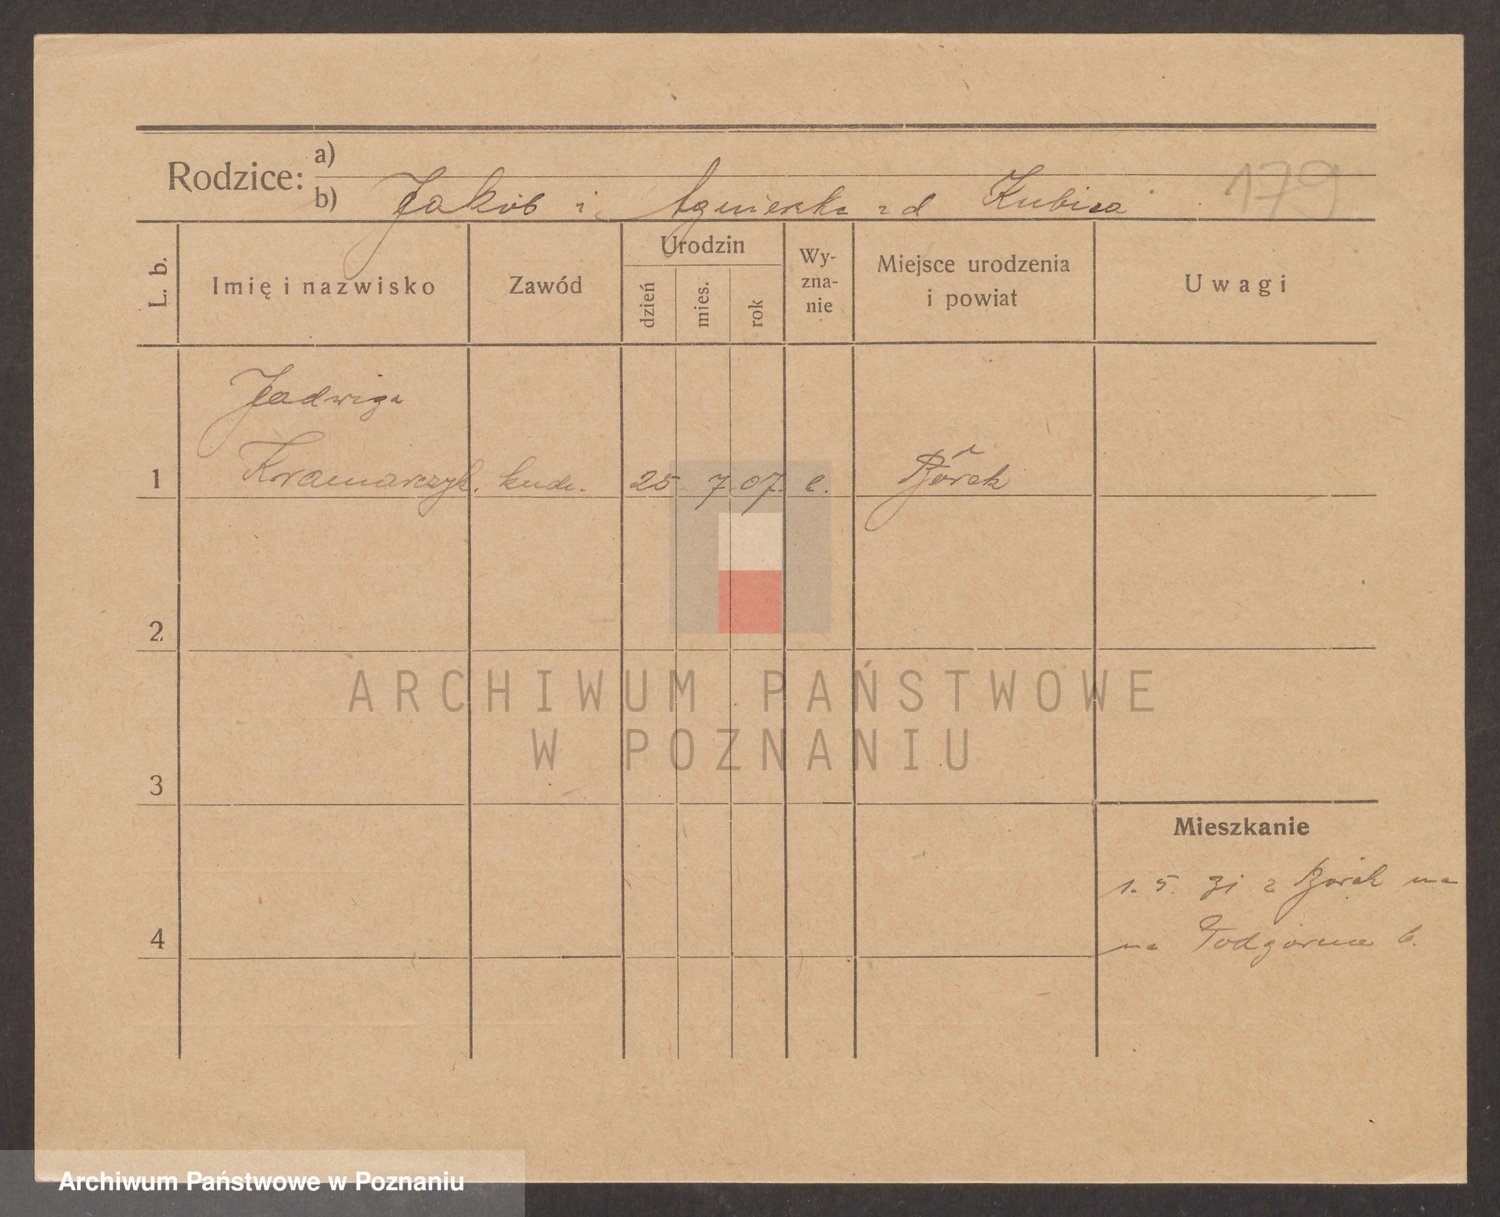 Rodzice: a)
b) Jakób i Agnieszka zd Kubica 179
L. b. Imię i nazwisko Zawód Urodzin dzień mies. rok Wy-zna-nie Miejsce urodzenia i powiat Uwagi
Jadwiga
1 Kramarczyk. 25 7 07. Borek
2
3
4
Mieszkanie
1. 5. 31 z Borek na
na Podgórna 6.
ARCHIWUM PAŃSTWOWE
W POZNANIU
Archiwum Państwowe w Poznaniu